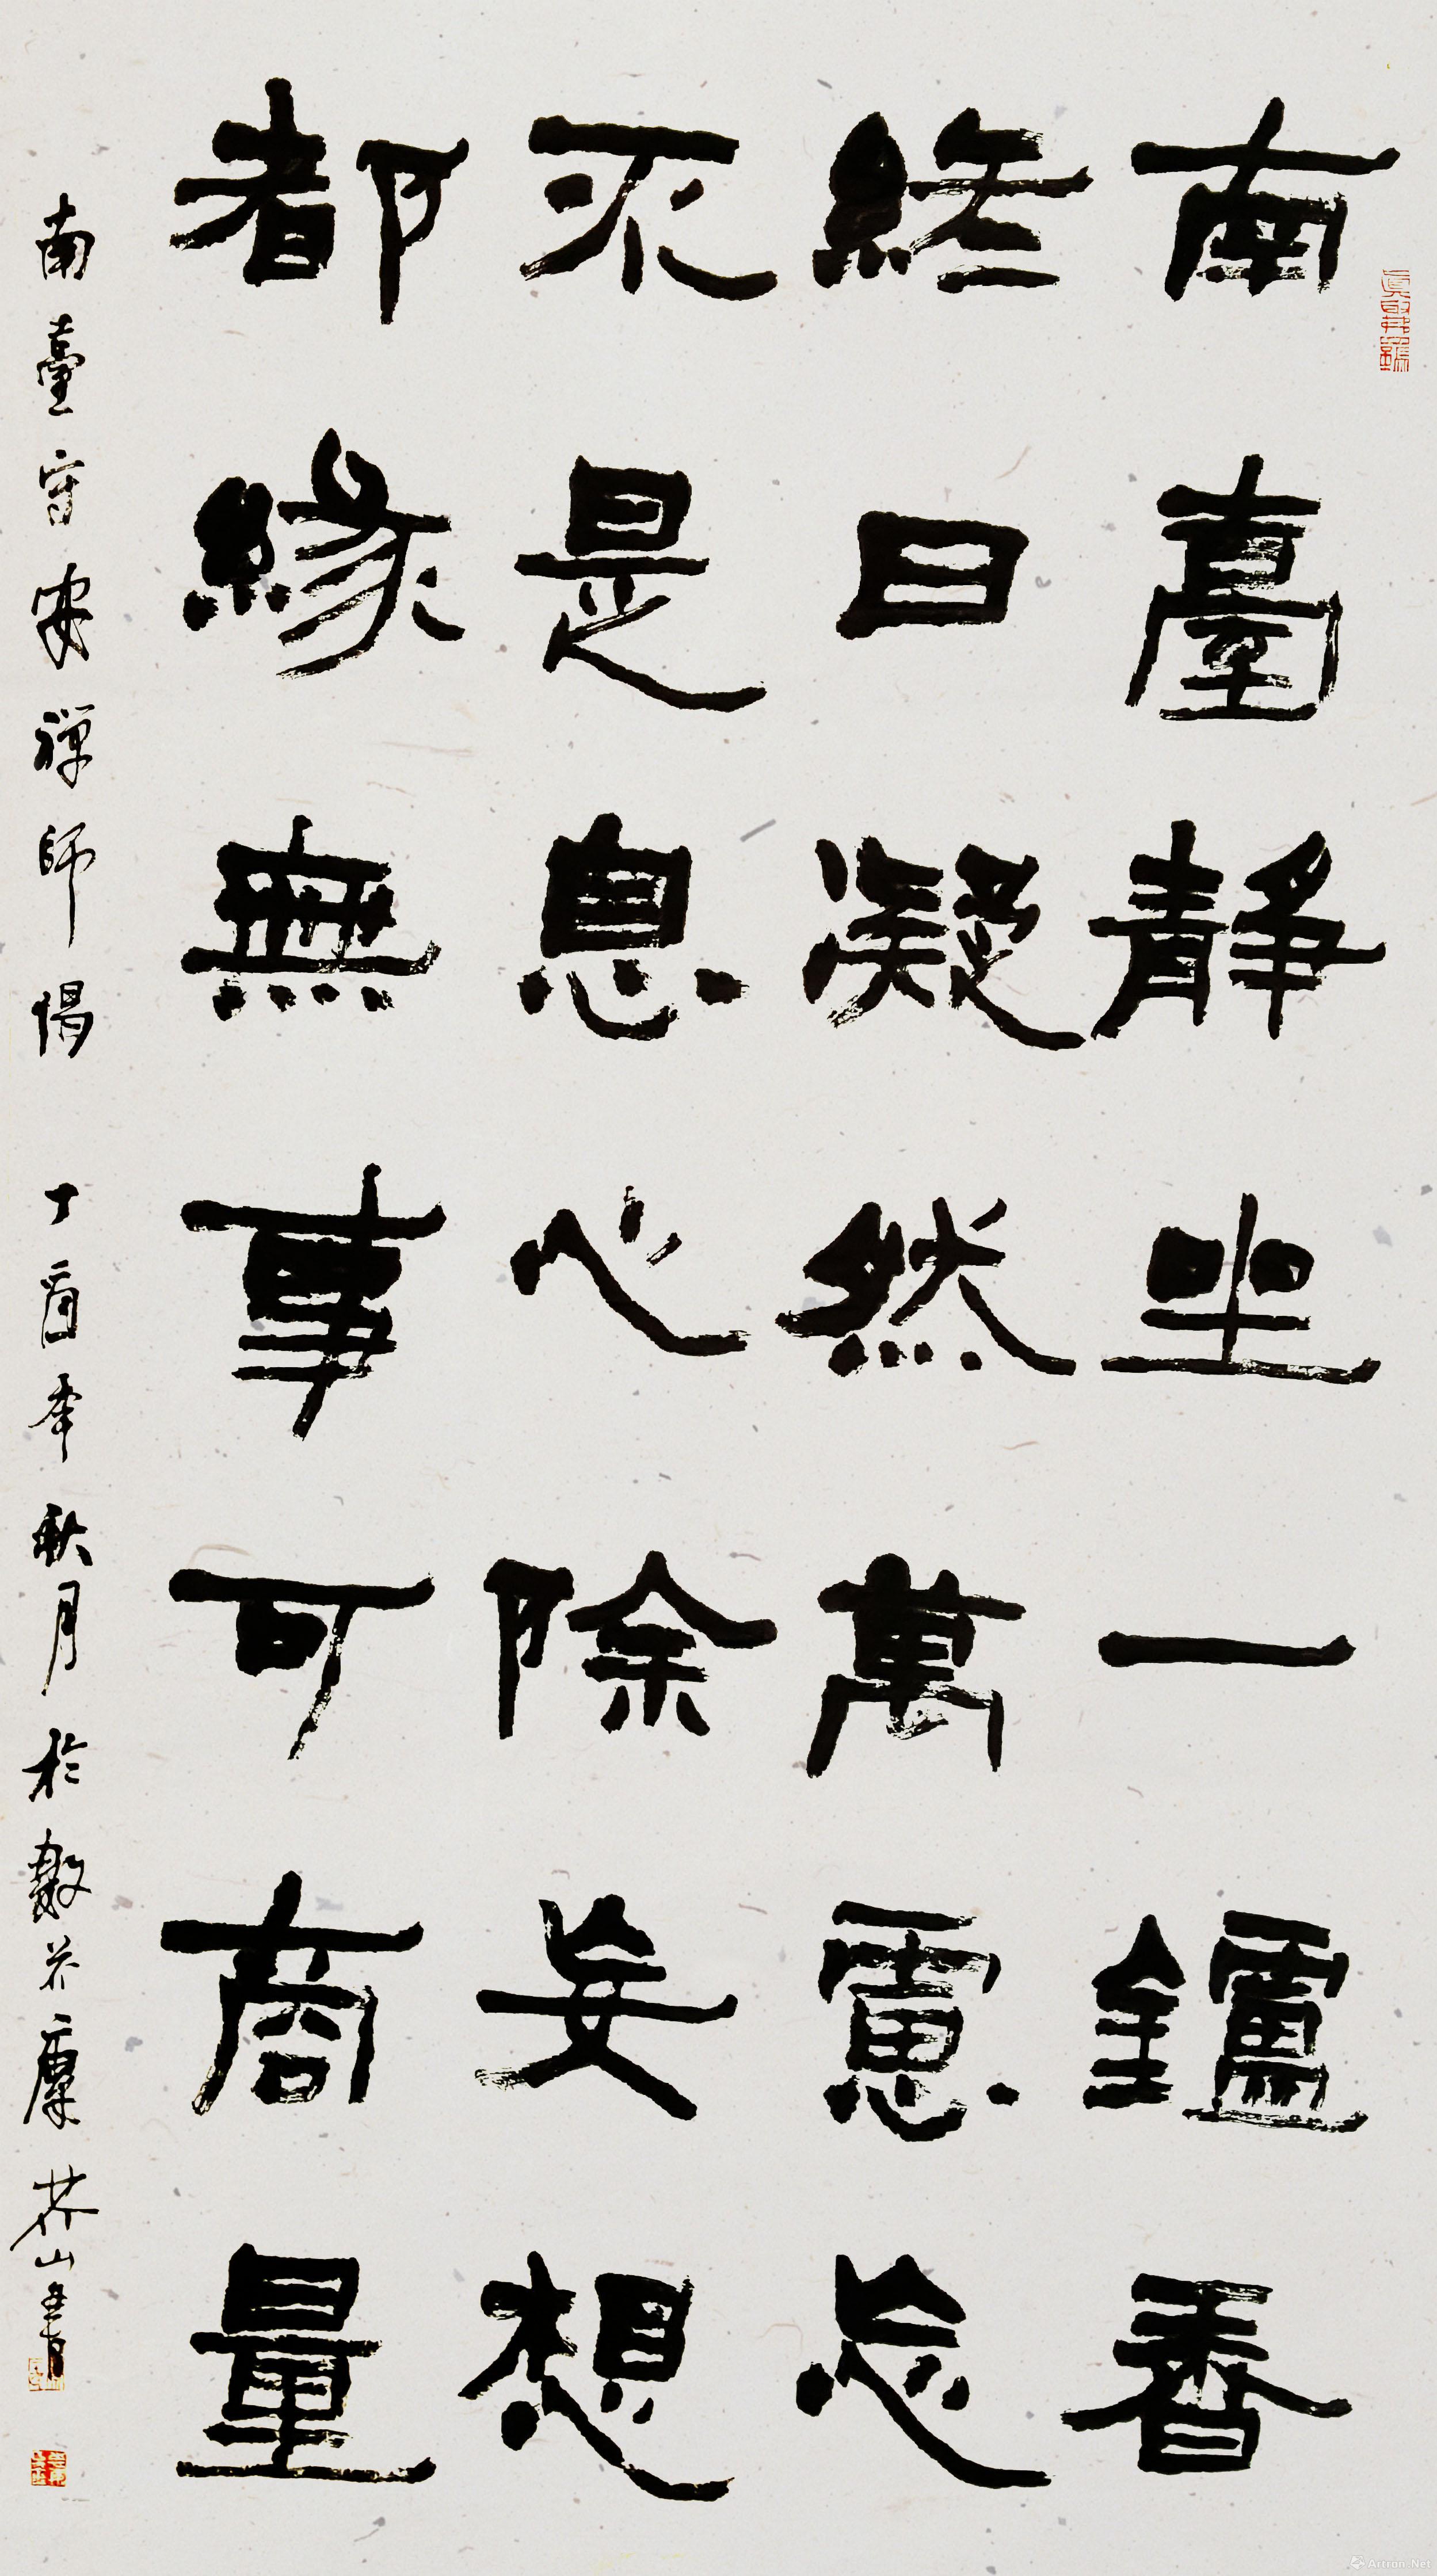 南臺靜坐一鑪香
終日凝然萬慮忘
不是息心除妄想
都緣無事可商量
南臺守安禪師偈 丁酉年秋月於數芥廬 芥山書
Artron.Net